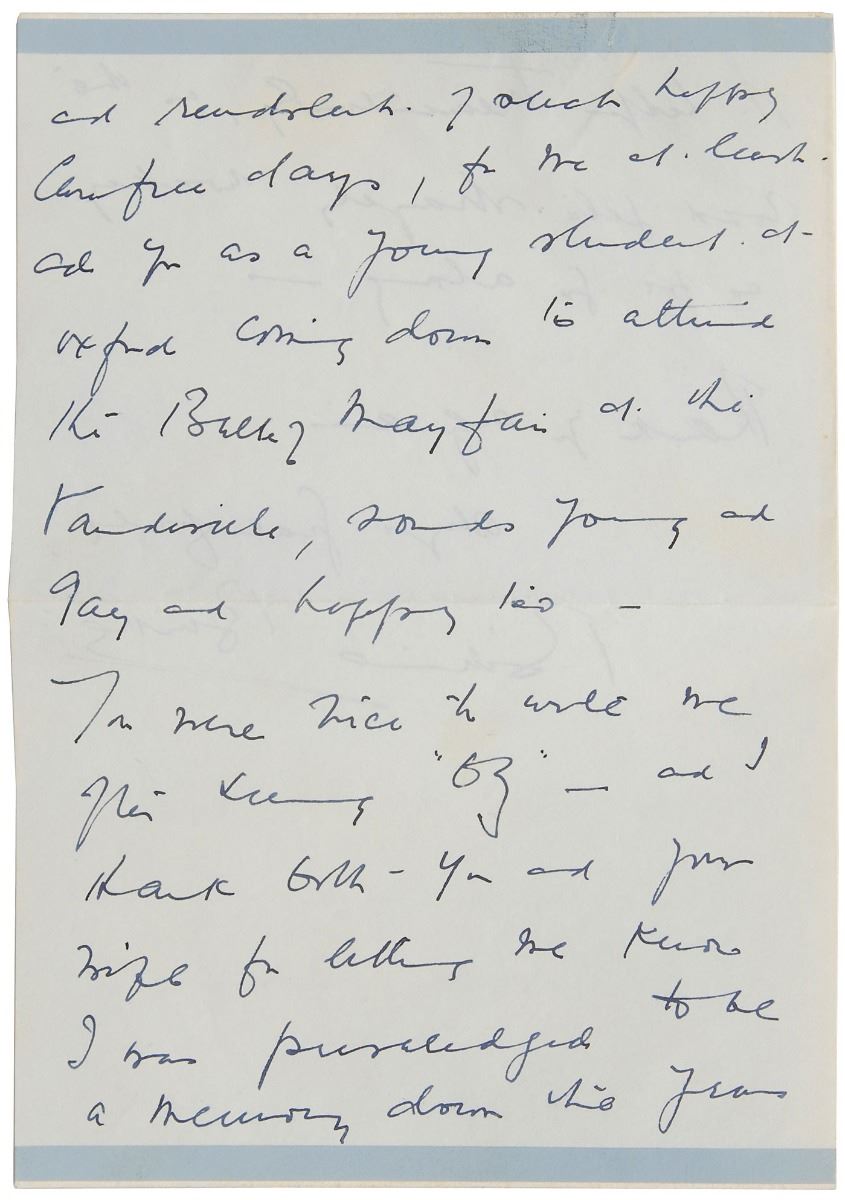 and reminiscent. of such happy
Carefree days, for me at. least.
and you as a young student. at
Oxford coming down to attend
the Ballet of Mayfair at. the
Vaudeville, sounds young and
gay and happy too —
You were nice to write me
after seeing "Oz" — and I
thank both - you and your
wife for letting me know
I was priviledged to be
a memory down the years